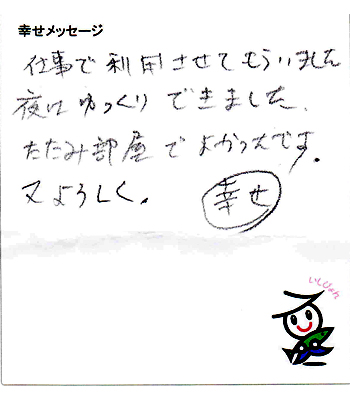 幸せメッセージ
仕事で利用させてもらいました
夜はゆっくりできました、
たたみ部屋でよかったです。
又よろしく。
幸せ